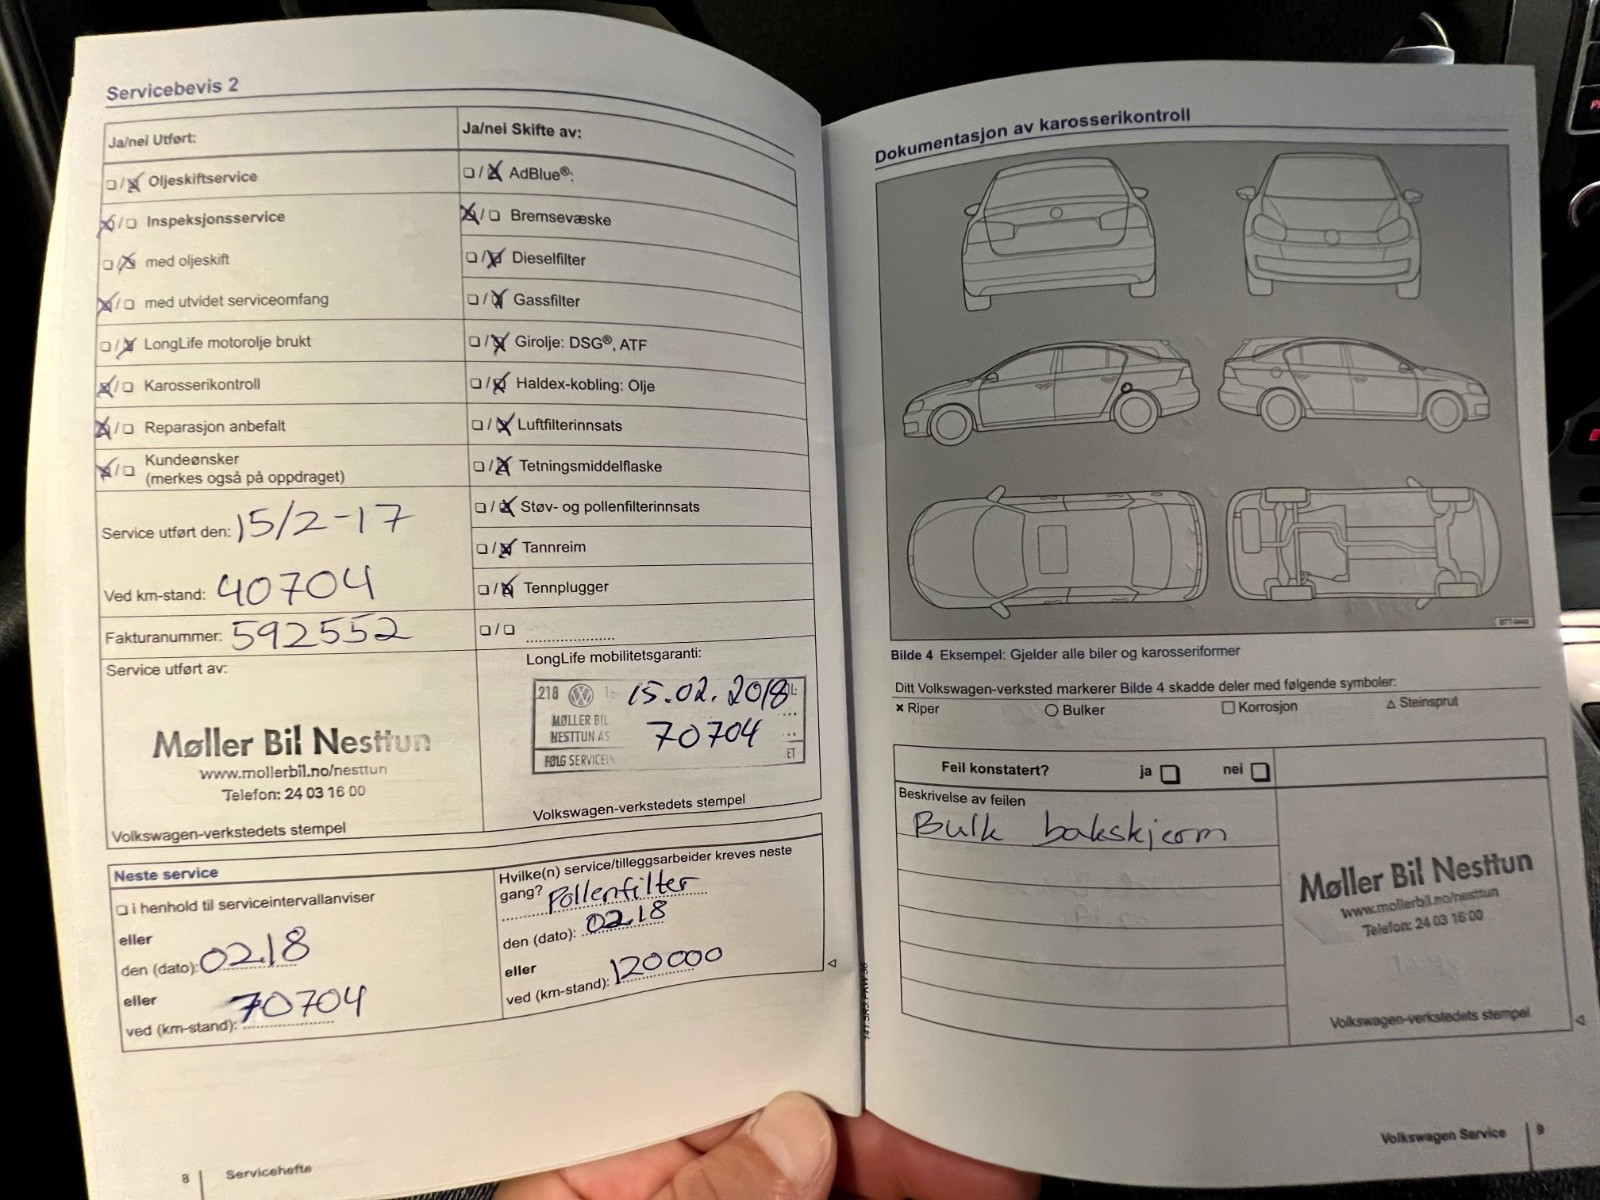 Servicebevis 2
Ja/nei Utført:
☐/☒ Oljeskiftservice
☒/☐ Inspeksjonsservice
☐/☒ med oljeskift
☒/☐ med utvidet serviceomfang
☐/☒ LongLife motorolje brukt
☒/☐ Karosserikontroll
☒/☐ Reparasjon anbefalt
☒/☐ Kundeønsker
(merkes også på oppdraget)
Service utført den: 15/2-17
Ved km-stand: 40704
Fakturanummer: 592552
Service utført av:
Møller Bil Nesttun
www.mollerbil.no/nesttun
Telefon: 24 03 16 00
Volkswagen-verkstedets stempel
Ja/nei Skifte av:
☐/☒ AdBlue®:
☒/☐ Bremsevæske
☐/☒ Dieselfilter
☐/☒ Gassfilter
☐/☒ Girolje: DSG®, ATF
☐/☒ Haldex-kobling: Olje
☐/☒ Luftfilterinnsats
☐/☒ Tetningsmiddelflaske
☐/☒ Støv- og pollenfilterinnsats
☐/☒ Tannreim
☐/☒ Tennplugger
☐/☐ ....................
LongLife mobilitetsgaranti:
218 15.02.2018
MØLLER BIL
NESTTUN AS 70704
FØLG SERVICEIN ET
Volkswagen-verkstedets stempel
Neste service
☐ i henhold til serviceintervallanviser
eller
den (dato): 02.18
eller
ved (km-stand): 70704
Hvilke(n) service/tilleggsarbeider kreves neste
gang? Pollenfilter
den (dato): 02.18
eller
ved (km-stand): 120000
8 | Servicehefte
Dokumentasjon av karosserikontroll
Bilde 4 Eksempel: Gjelder alle biler og karosseriformer
Ditt Volkswagen-verksted markerer Bilde 4 skadde deler med følgende symboler:
× Riper ○ Bulker □ Korrosjon △ Steinsprut
Feil konstatert? ja ☐ nei ☐
Beskrivelse av feilen
Bulk bakskjerm
Møller Bil Nesttun
www.mollerbil.no/nesttun
Telefon: 24 03 16 00
Volkswagen-verkstedets stempel
Volkswagen Service | 9